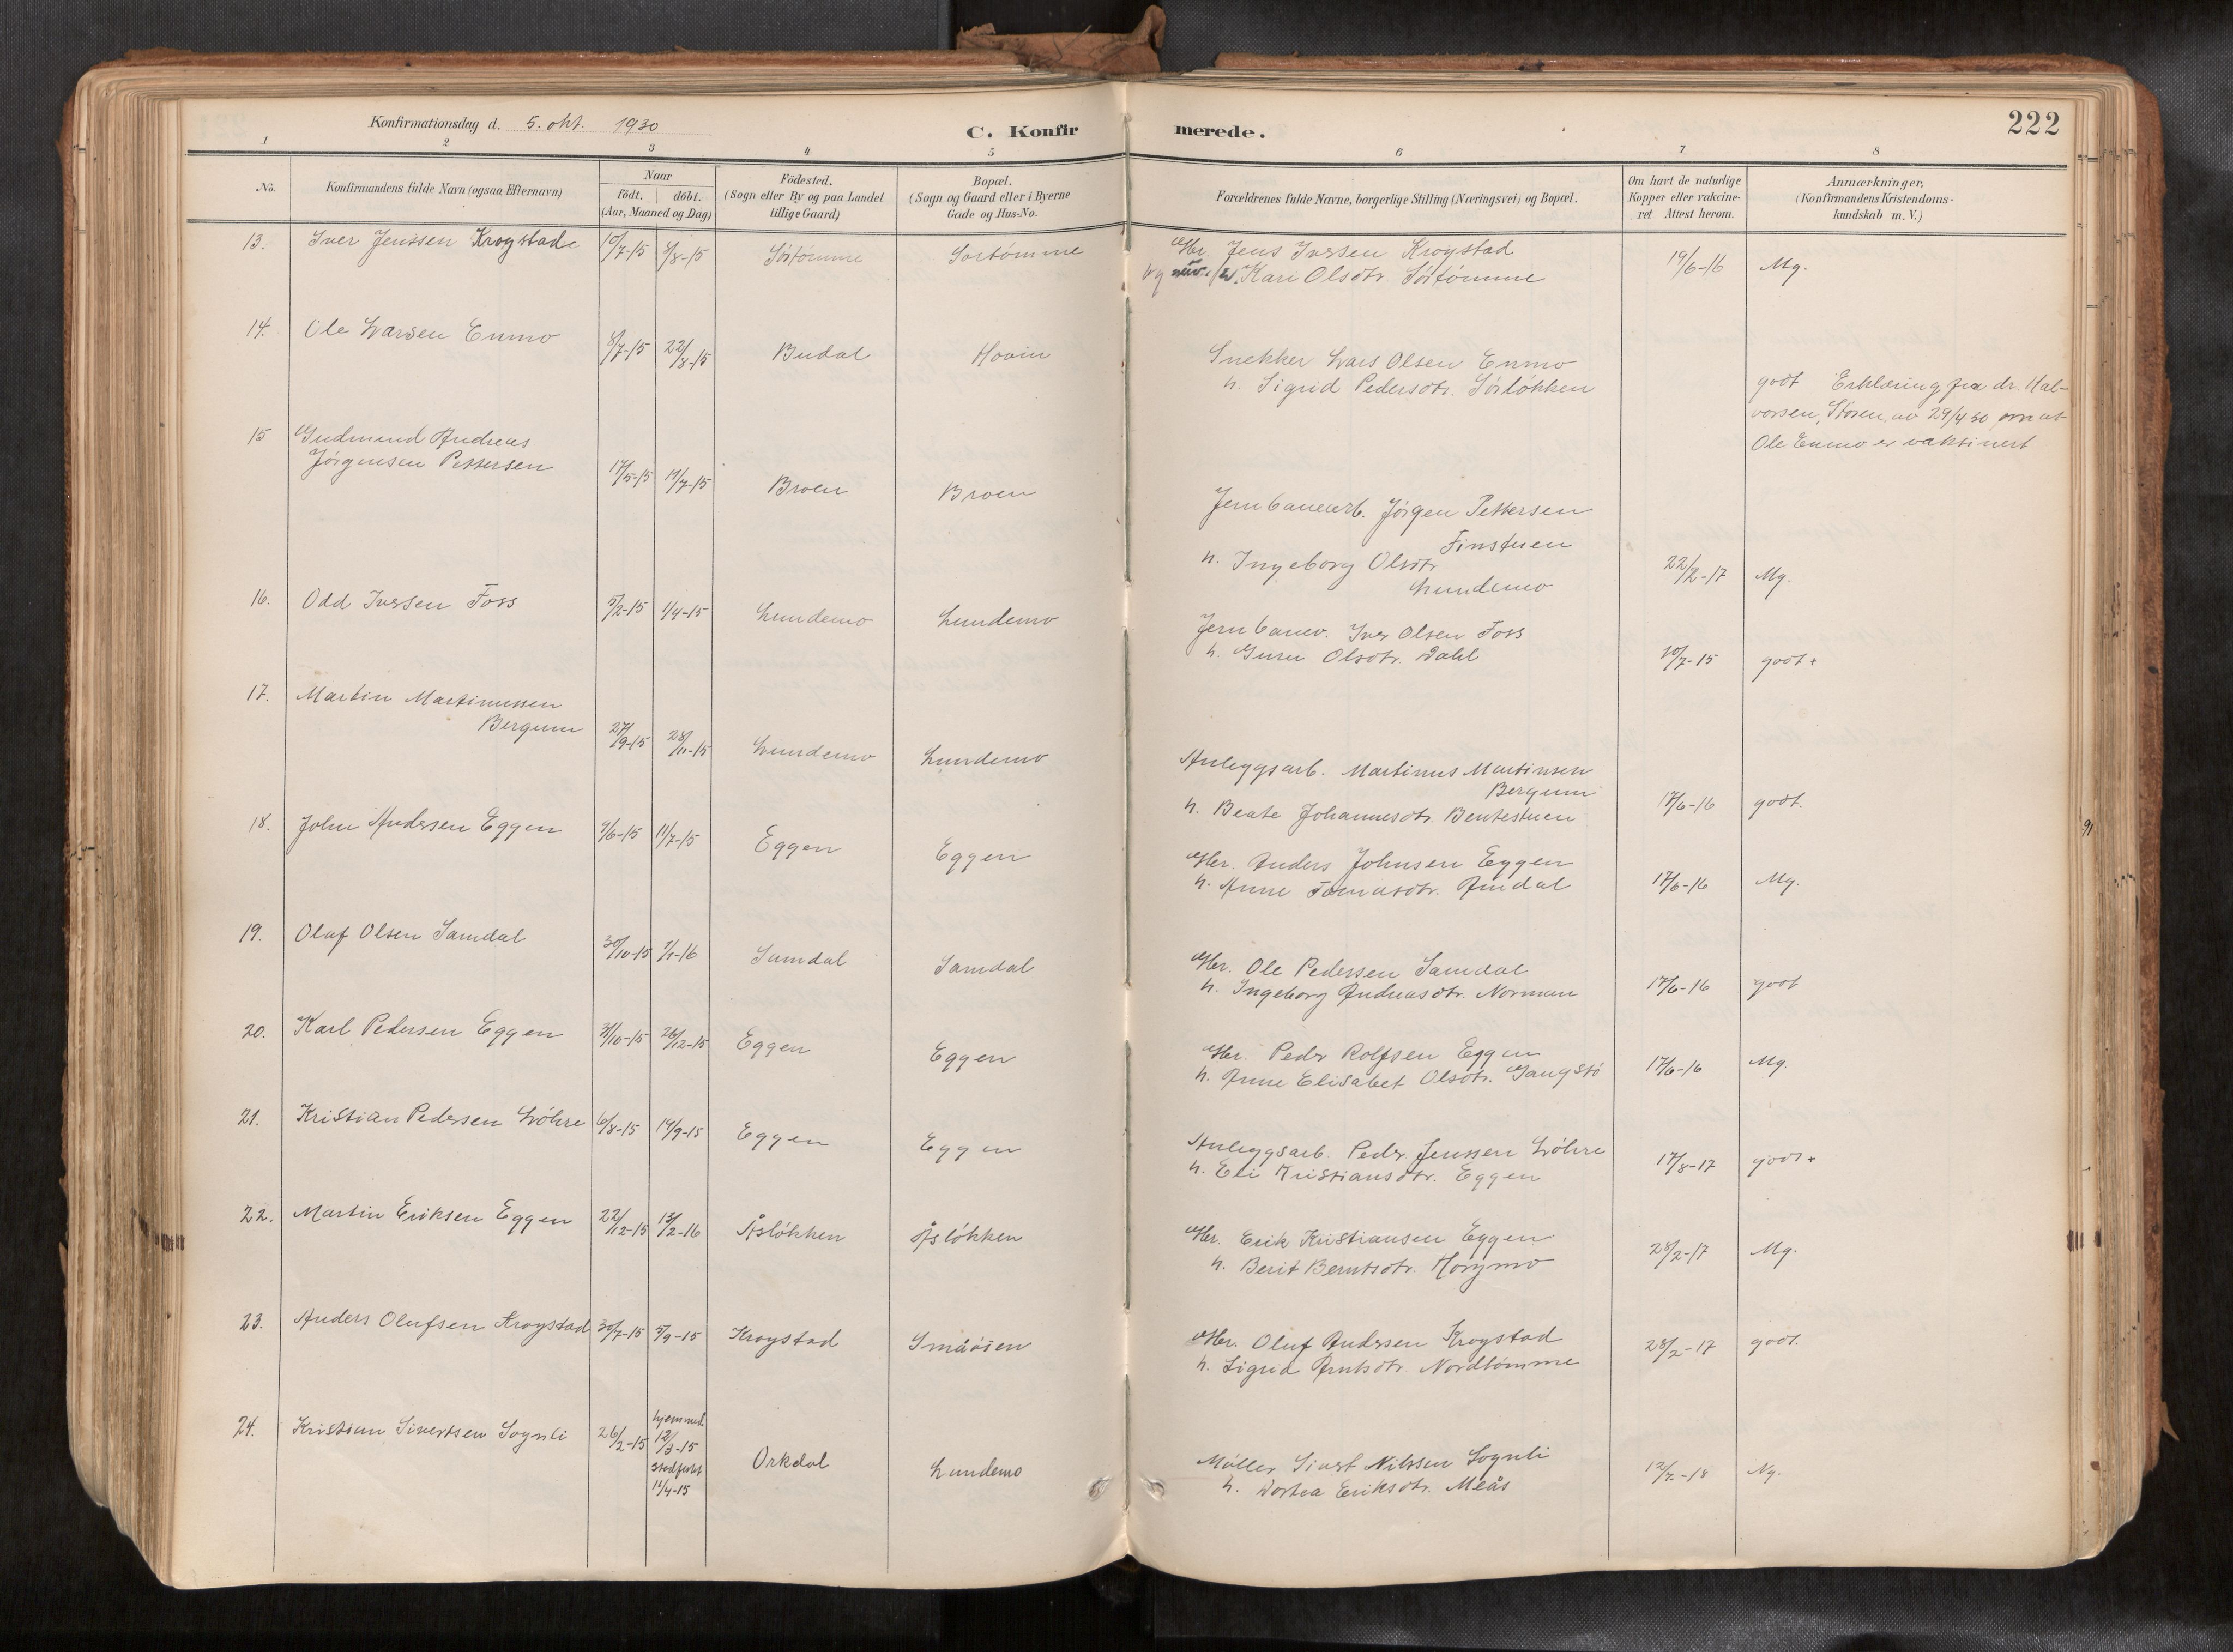 Konfirmationsdag d. 5. okt. 1930
C. Konfirmerede.
222
1 2 3 4 5 6 7 8
No.
Konfirmandens fulde Navn (ogsaa Efternavn)
Naar
födt. döbt.
(Aar, Maaned og Dag)
Födested.
(Sogn eller By og paa Landet
tillige Gaard)
Bopæl.
(Sogn og Gaard eller i Byerne
Gade og Hus-No.
Forældrenes fulde Navne, borgerlige Stilling (Næringsvei) og Bopæl.
Om havt de naturlige
Kopper eller vakcine-
ret Attest herom.
Anmærkninger.
(Konfirmandens Kristendoms-
kundskab m. V.)
13. Iver Jenssen Krogstad 10/7-15 /8-15 Sørtømme Sørtømme
Jens Iversen Krogstad
Kari Olsdtr. Sørtømme
19/6-16 Mg.
14. Ole Larsen Enmo 8/7-15 22/8-15 Budal Hovin
Snekker Lars Olsen Enmo
h. Sigrid Pedersdtr. Sørløkken
godt Erklæring fra dr. Hal-
vorsen, Støren, av 29/4 30 om at
Ole Enmo er vaksinert
15 Gudmund Andreas
Jørgensen Pettersen 17/5-15 11/7-15 Broen Broen
Jernbanearb. Jørgen Pettersen
Finstuen
h. Ingeborg Olsdtr
Lundemo
22/2-17 Mg.
16. Odd Iversen Foss 5/2-15 1/4-15 Lundemo Lundemo
Jernbanev. Iver Olsen Foss
h. Guru Olsdtr. Dahl
10/7-15 godt +
17. Martin Martinussen
Bergum 27/9-15 28/11-15 Lundemo Lundemo
Anleggsarb. Martinus Martinsen
Bergum
h. Beate Johannesdtr. Bentestuen
17/6-16 godt.
18. John Andersen Eggen 4/6-15 11/7-15 Eggen Eggen
Gbr. Anders Johnsen Eggen
h. Anne Tomasdtr. Amdal
17/6-16 Mg.
19. Oluf Olsen Samdal 30/10-15 1/1-16 Samdal Samdal
Gbr. Ole Pedersen Samdal
h. Ingeborg Andreasdtr. Norman
17/6-16 godt
20. Karl Pedersen Eggen 31/10-15 26/12-15 Eggen Eggen
Gbr. Peder Rolfsen Eggen
h. Anne Elisabet Olsdtr. Gaugstø
17/6-16 Mg.
21. Kristian Pedersen Løhre 6/8-15 19/9-15 Eggen Eggen
Anleggsarb. Peder Jenssen Løhre
h. Eli Kristiansdtr. Eggen
17/8-17 godt +
22. Martin Eriksen Eggen 22/12-15 13/2-16 Åsløkken Åsløkken
Gbr. Erik Kristiansen Eggen
h. Berit Berntsdtr. Horgmo
28/2-17 Mg.
23. Anders Olufsen Krogstad 30/7-15 5/9-15 Krogstad Småøien
Gbr. Oluf Andersen Krogstad
h. Sigrid Arntsdtr. Nordtømme
28/2-17 godt.
24. Kristian Sivertsen Sognli 26/2-15 hjemmed. 12/3-15 stadfestet 11/4-15 Orkdal Lundemo
Møller Sivert Nilssen Sognli
h. Dortea Eriksdtr. Meås
12/2-18 Ng.